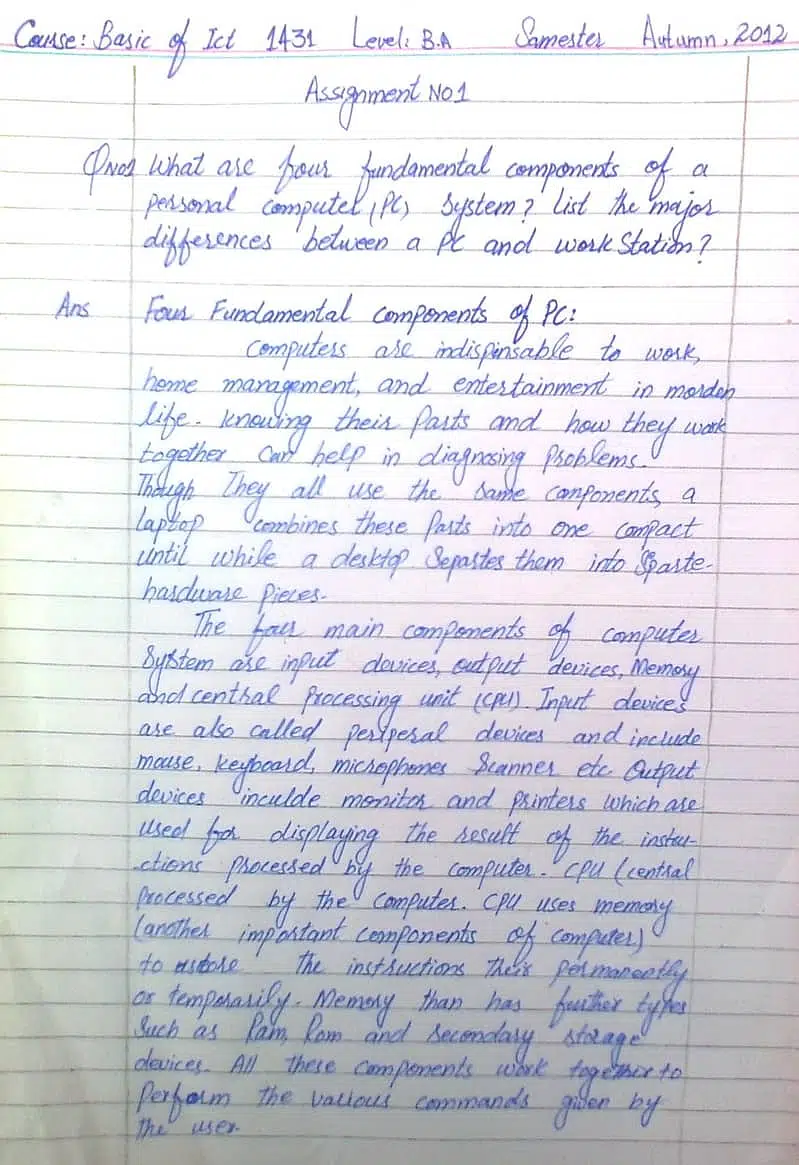 Course: Basic of Ict 1431 Level: B.A Samester Autumn, 2012
Assignment No 1
QNo1 What are four fundamental components of a
personal computer (PC) System? List the major
differences between a PC and work Station?
Ans Four Fundamental components of PC:
Computers are indispinsable to work,
home management, and entertainment in morden
life. Knowing their Parts and how they work
together Can help in diagnosing Problems.
Though They all use the same components, a
laptop combines these Parts into one compact
until while a desktop Sepastes them into Sparte-
hardware Pieces.
The four main components of computer
System are input devices, output devices, Memory
and central Processing unit (CPU). Input devices
are also called periperal devices and include
mouse, keyboard, microphones Scanner etc Output
devices inculde monitor and printers which are
used for displaying the result of the instru-
ctions Processed by the computer. CPU (central
Processed by the Computer. CPU uses memory
(another important components of computer)
to the instructions their permanently
or temporarily. Memory than has further types
Such as Ram, Rom and secondary storage
devices. All these components work together to
Perform the various commands given by
The user.